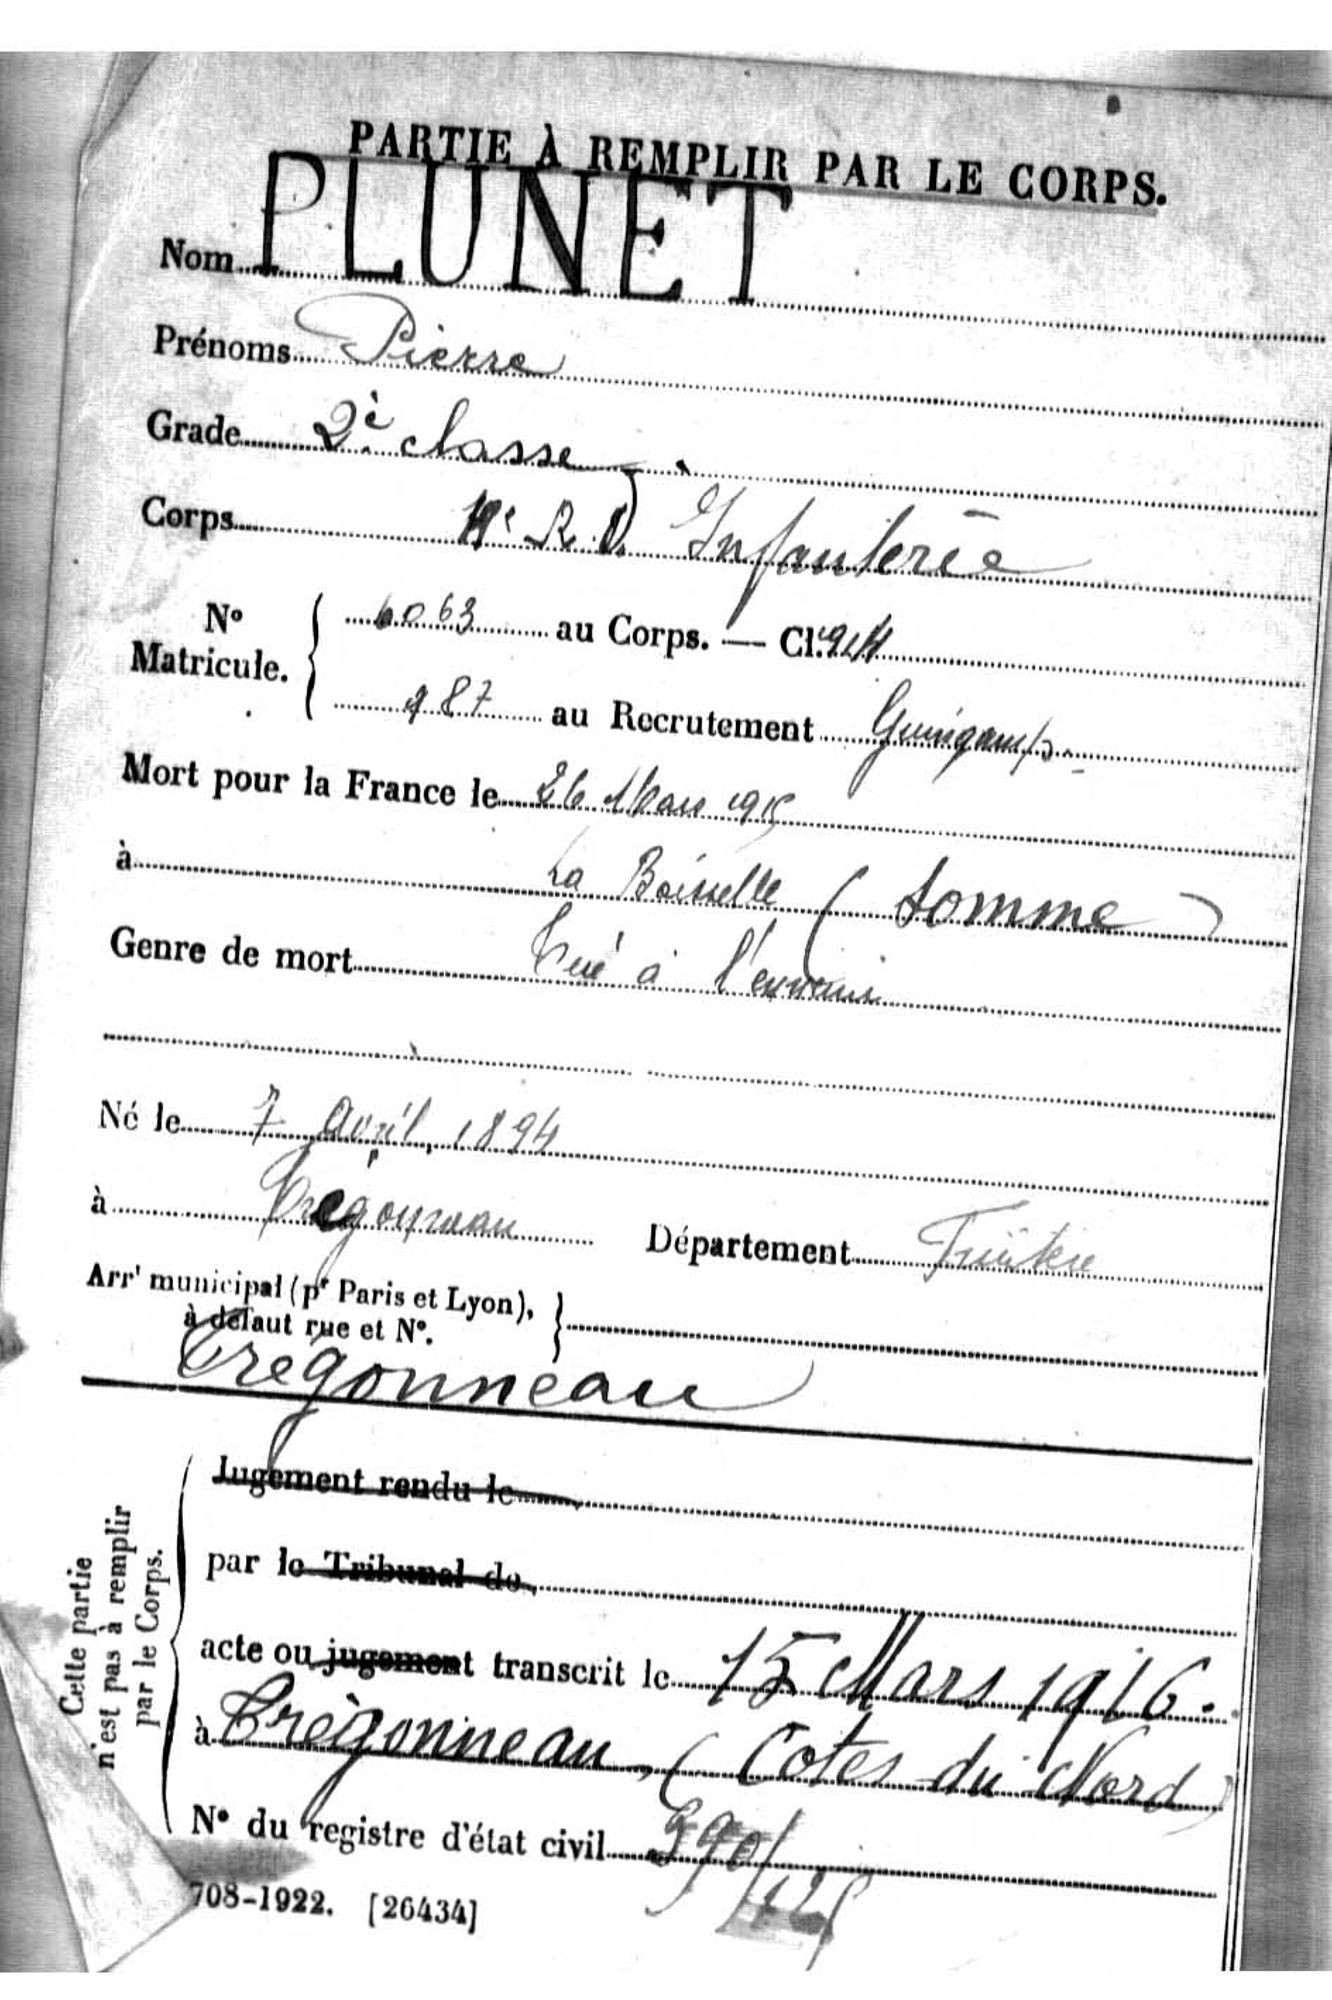 PARTIE À REMPLIR PAR LE CORPS.
Nom PLUNET
Prénoms Pierre
Grade 2è classe
Corps 19e R. D Infanterie
No Matricule. 6063 au Corps. — Cl. 1914
987 au Recrutement Guingamp
Mort pour la France le 26 Mars 1915
à La Boisselle (Somme)
Genre de mort Tué à l'ennemi
Né le 7 avril 1894
à Trégonneau Département Finistère
Arrt municipal (pr Paris et Lyon),
à défaut rue et No.
Trégonneau
Jugement rendu le
par le Tribunal de
acte ou jugement transcrit le 15 Mars 1916.
à Trégonneau, (Cotes du Nord)
No du registre d'état civil
708-1922. [26434]
Cette partie
n'est pas à remplir
par le Corps.